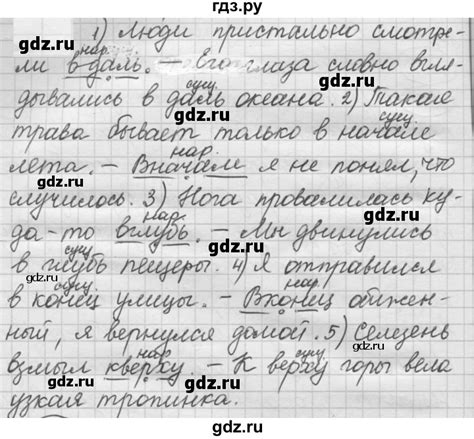 гдз.ру
1) Люди пристально смотре-
нар.
ли вдаль. – Его глаза словно вгля-
сущ.
дывались в даль океана. 2) Такая
сущ.
трава бывает только в начале
нар.
лета. – Вначале я не понял, что
случилось. 3) Нога провалилась ку-
нар.
да-то вглубь. – Мы двинулись
сущ.
в глубь пещеры. 4) Я отправился
сущ. нар.
в конец улицы. – Вконец обижен-
ный, я вернулся домой. 5) Селезень
нар. сущ.
взмыл кверху. – К верху горы вела
узкая тропинка.
gdz.ru
gdz.ru
gdz.ru
gdz.ru
gdz.ru
gdz.ru
gdz.ru
gdz.ru
gdz.ru
gdz.ru
gdz.ru
gdz.ru
gdz.ru
gdz.ru